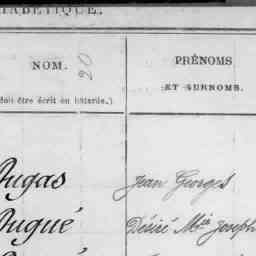 ALPHABÉTIQUE.
NOM. 20 PRÉNOMS
ET SURNOMS.
doit être écrit en bâtarde.)
Dugas Jean Georges
Dugué Désiré Mie Joseph